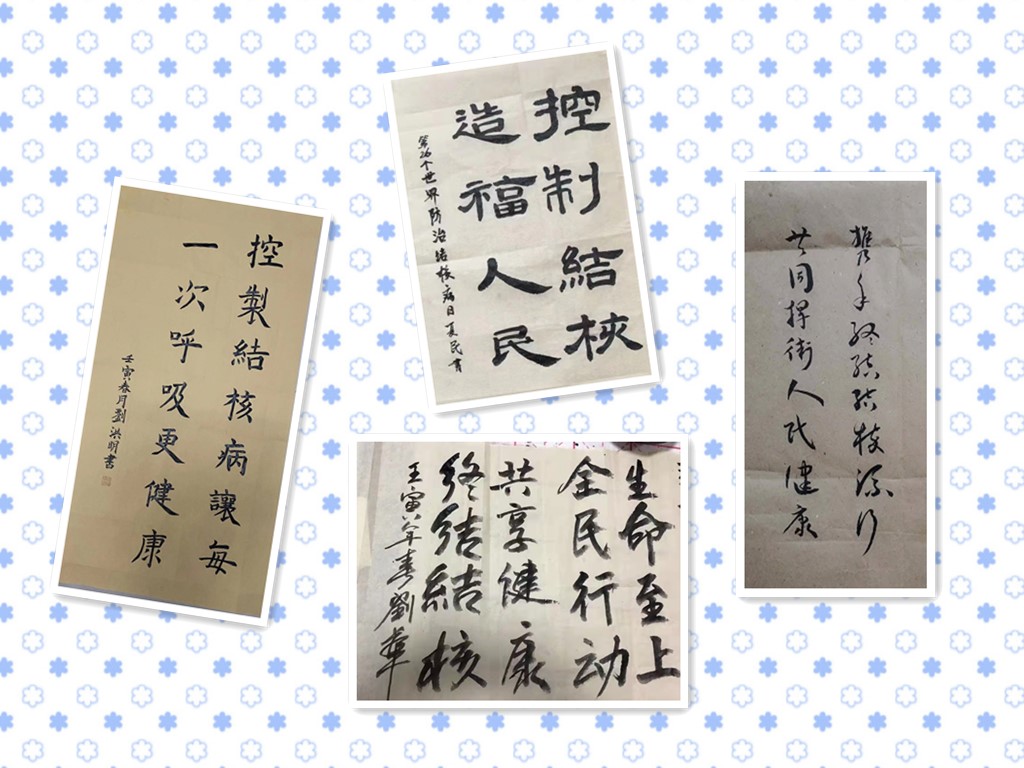 控製結核病讓每
一次呼吸更健康
壬寅春月劉洪明書
控制結核
造福人民
第26个世界防治结核病日夏民書
生命至上
全民行动
共享健康
终結結核
壬寅年春劉華
攜手终结结核流行
共同捍衛人民健康